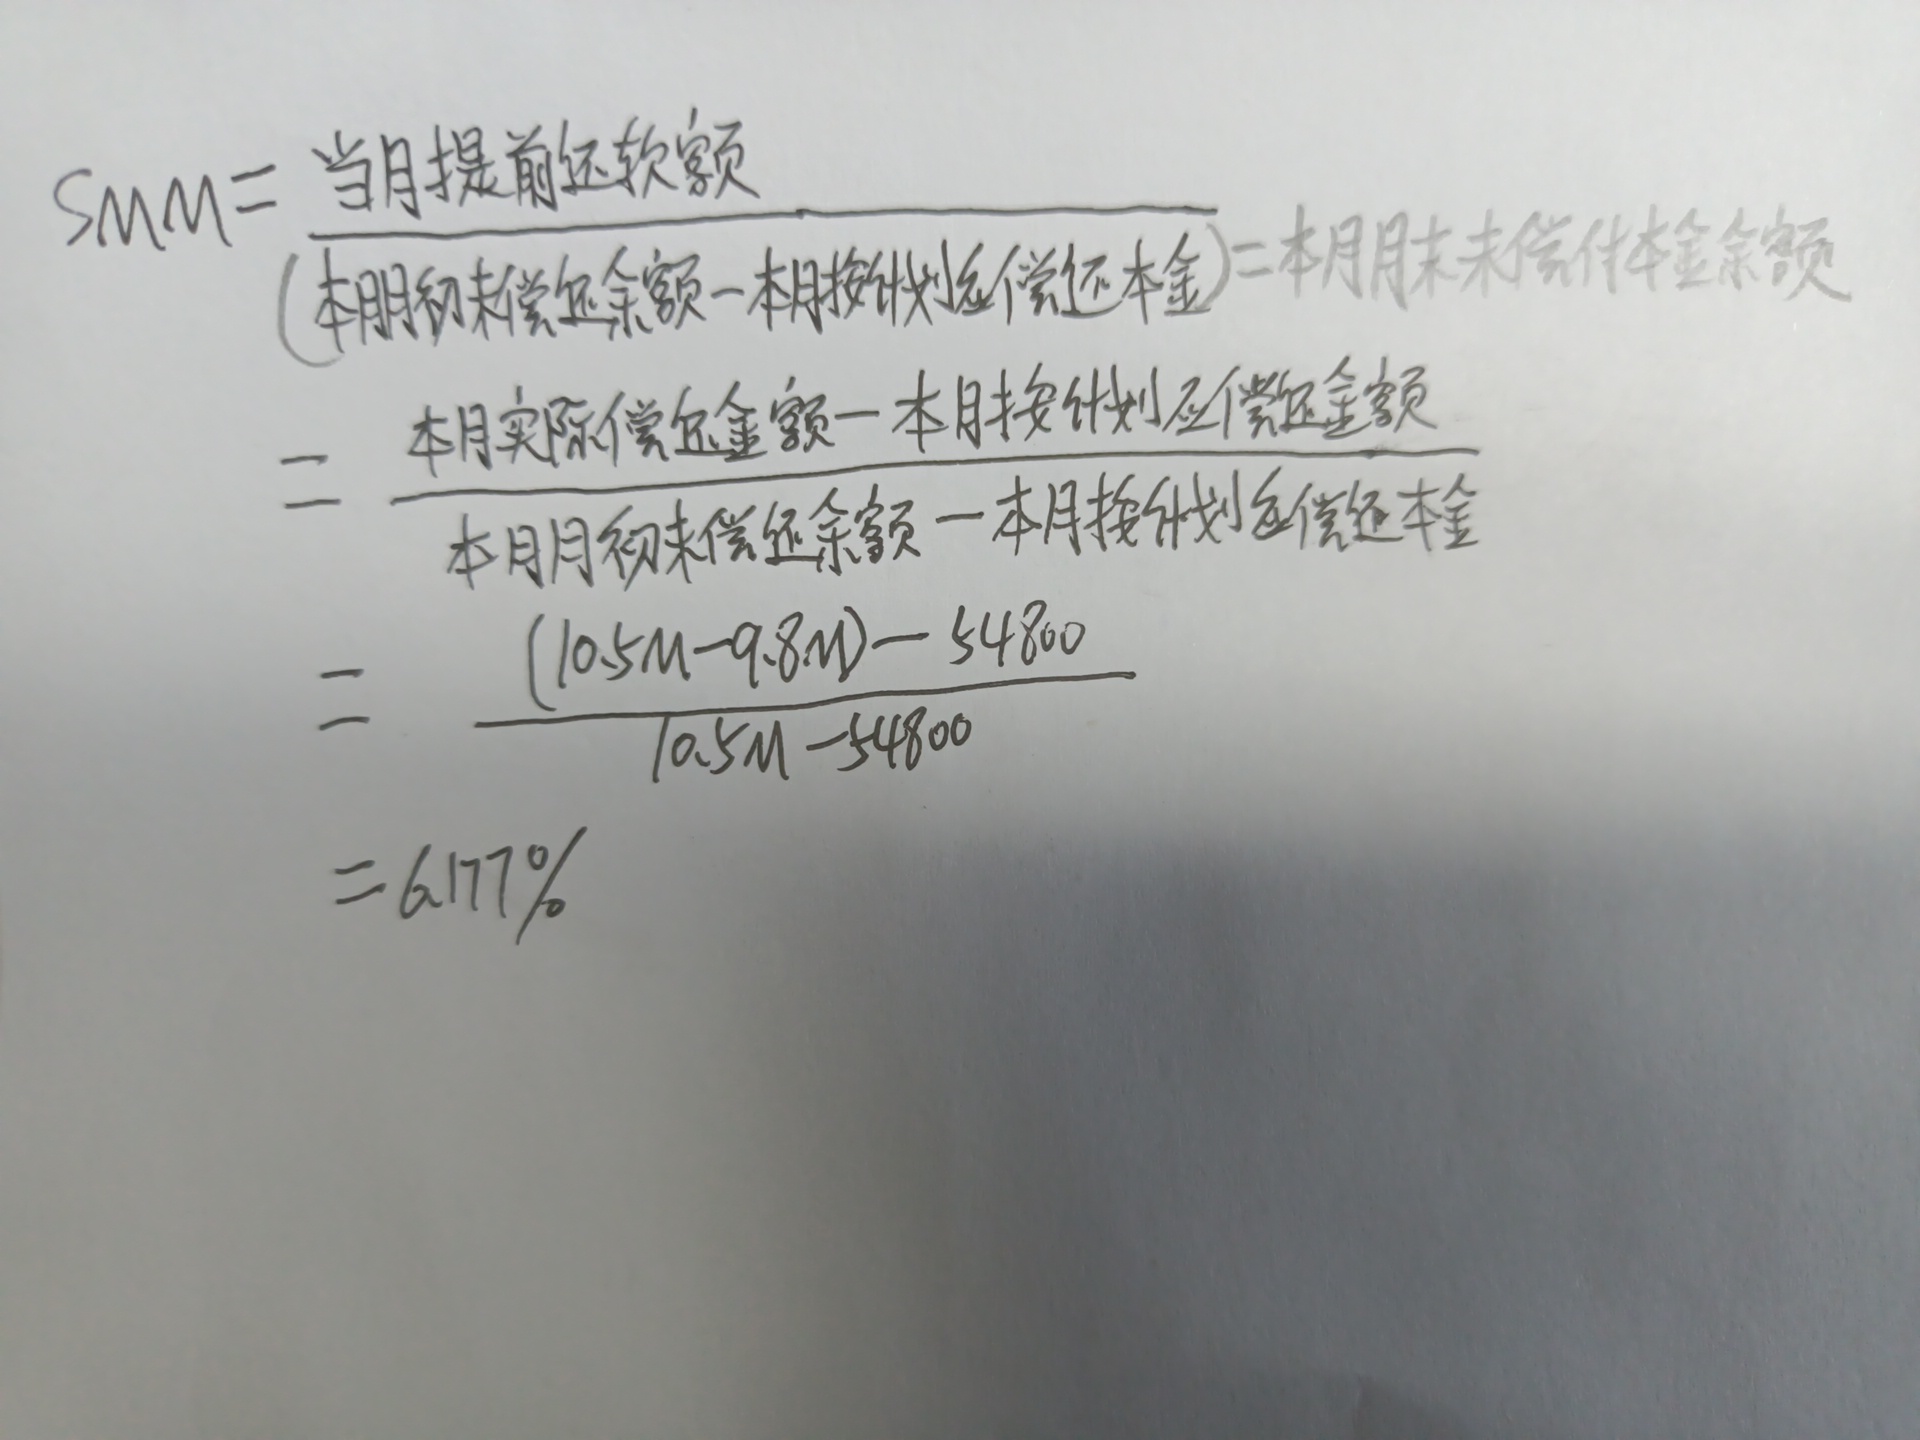 SMM = 当月提前还款额
(本月月初未偿还余额 - 本月按计划应偿还本金) = 本月月末未偿付本金余额
= 本月实际偿还金额 - 本月按计划应偿还金额
本月月初未偿还余额 - 本月按计划应偿还本金
= (10.5M-9.8M) - 54800
10.5M - 54800
= 6.177%